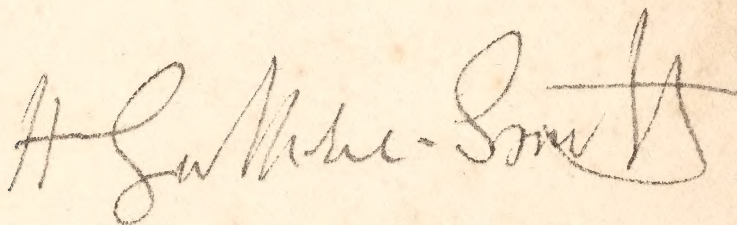 H Guthrie-Smith